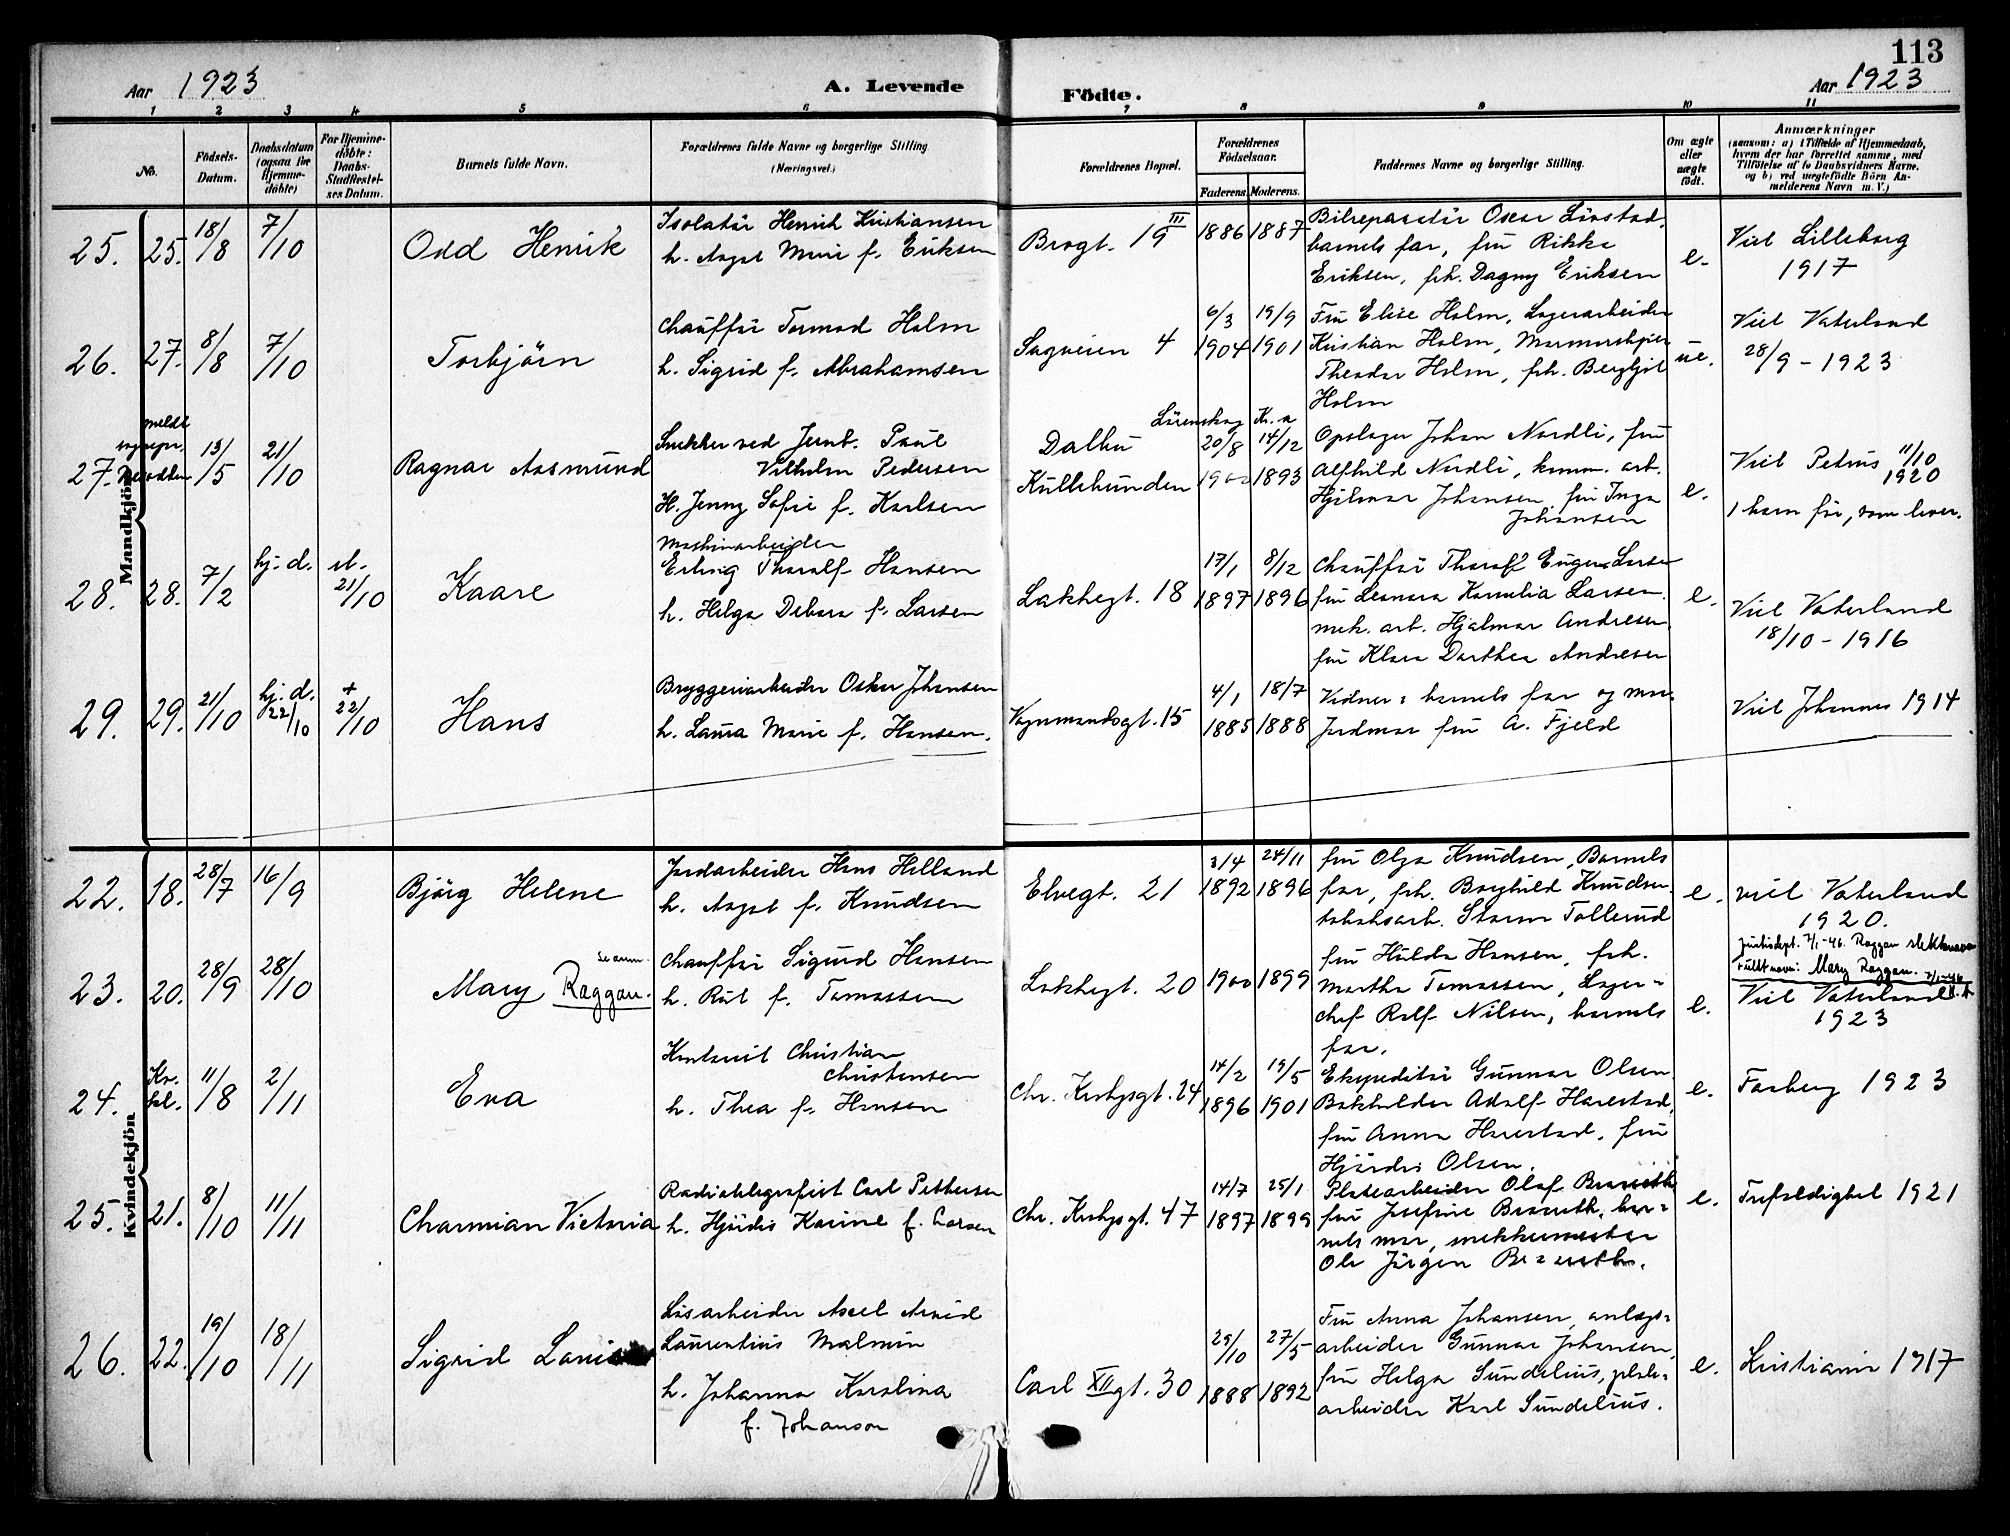 113
Aar 1923
A. Levende
Födte.
Aar 1923
1 2 3 4 5 6 7 8 9 10 11
No.
Födsels-
Datum.
Daabsdatum
(ogsaa for
Hjemme-
döbte)
For Hjemme-
döbte:
Daabs-
Stadfæstel-
ses Datum.
Barnets fulde Navn.
Forældrenes fulde Navne og borgerlige Stilling
(Næringsvei.)
Forældrenes Bopæl.
Forældrenes
Födselsaar.
Faderens. Moderens.
Faddernes Navne og borgerlige Stilling.
Om ægte
eller
uægte
födt.
Anmærkninger
(saasom: a) i Tilfælde af Hjemmedaab,
hvem der har forrettet samme, med
Tilföielse af to Daabsvidners Navne,
og b) ved uægtefödte Börn An-
melderens Navn m. V.)
Mandkjön
25. 25. 18/8 7/10
Odd Henrik
Isolatör Henrik Kristiansen
h. Aagot Marie f. Eriksen
Brogt. 19 III
1886 1887
Bilreparatör Oscar Lövstad,
barnets far, fru Rikke
Eriksen, frk. Dagny Eriksen
e.
Viet Lilleborg
1917
26. 27. 8/8 7/10
Torbjörn
Chaufför Tormod Holm
h. Sigrid f. Abrahamsen
Sagveien 4
6/3 19/9
1904 1901
Fru Elise Holm, Lagerarbeider
Kristian Holm,
Theodor Holm, frk. Bergljot
Holm
ue.
Viet Vaterland
28/9 - 1923
27. meldt
13/5 21/10
Ragnar Aasmund
Snekker ved Jernb. Paul
Vilhelm Pedersen
H. Jenny Sofie f. Karlsen
Lörenskog
Dalhu
Kullebunden
20/8 14/12
1900 1893
Opslager Johan Nordli, fru
Alfhild Nordli, komm. arb.
Hjalmar Johansen, fru Inga
Johansen
e.
Viet Petrus 11/10
1920
1 barn för, som lever.
28. 28. 7/2 hj. d. st.
21/10
Kaare
Maskinarbeider
Erling Thoralf Hansen
h. Helga Debora f. Larsen
Lakkegt. 18
17/1 8/12
1897 1896
Chaufför Thoralf Eugen Larsen
fru Leonora Kornelia Larsen.
mek. arb. Hjalmar Andresen.
fru Klara Dorthea Andresen
e.
Viet Vaterland
18/10 - 1916
29. 29. 21/10 hj. d. 22/10 + 22/10
Hans
Bryggeriarbeider Oskar Johansen
h. Laura Marie f. Hansen.
Vognmandsgt. 15
4/1 18/7
1885 1888
Vidner: barnets far og mor
Jordmor fru A. Fjeld
Viet Johannes 1914
Kvindekjön
22. 18. 28/7 16/9
Björg Helene
Jordarbeider Hans Helland
h. Aagot f. Knudsen
Elvegt. 21
3/4 24/11
1892 1896
fru Olga Knudsen, Barnets
far, frk. Borghild Knudsen.
tobaksarb. Storm Tollerud
e.
viet Vaterland
1920.
23. 20. 28/9 28/10
Mary Raggan.
se anm.
Chaufför Sigurd Hansen
h. Rut f. Tomassen
Lakkegt. 20
1900 1899
fru Hulda Hansen, frk.
Martha Tomassen, Lager-
chef Rolf Nilsen, barnets
far.
e.
Justisdept. 7/1-46. Raggan slektsnavn
Fullt navn: Mary Raggan.
Viet Vaterland
1923
24. Kv. kl. 11/8 2/11
Eva
Kontorist Christian
Christensen
h. Thea f. Hansen
Chr. Krohgsgt. 24
14/2 19/5
1896 1901
Ekspeditör Gunnar Olsen
Bokholder Adolf Harestad,
fru Anna Harestad, fru
Hjördis Olsen.
e.
Fagerborg 1923
25. 21. 8/10 11/11
Charmian Victoria
Radiotelegrafist Carl Pettersen
h. Hjördis Karine f. Larsen
Chr. Krohgsgt. 47
14/7 25/1
1897 1899
Platearbeider Olaf
fru Josefine bar-
nets mor, snekkermester
Ole Jörgen
e.
Trefoldighet 1921
26. 22. 19/10 18/11
Sigrid
Lösarbeider Axel Arvid
Laurentius Malmin
h. Johanna Karolina
f. Johanson
Carl XII gt. 30
29/10 27/5
1888 1892
Fru Anna Johansen, anlægs-
arbeider Gunnar Johansen,
fru Helga Sundelius, plate-
arbeider Karl Sundelius.
e.
Kristiania 1917